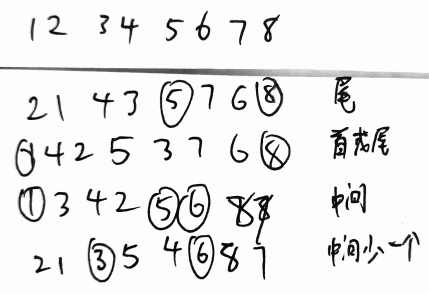 1 2 3 4 5 6 7 8
2 1 4 3 5 7 6 8 尾
1 4 2 5 3 7 6 8 首或尾
1 3 4 2 5 6 8 8 中间
2 1 3 5 4 6 8 7 中间少一个